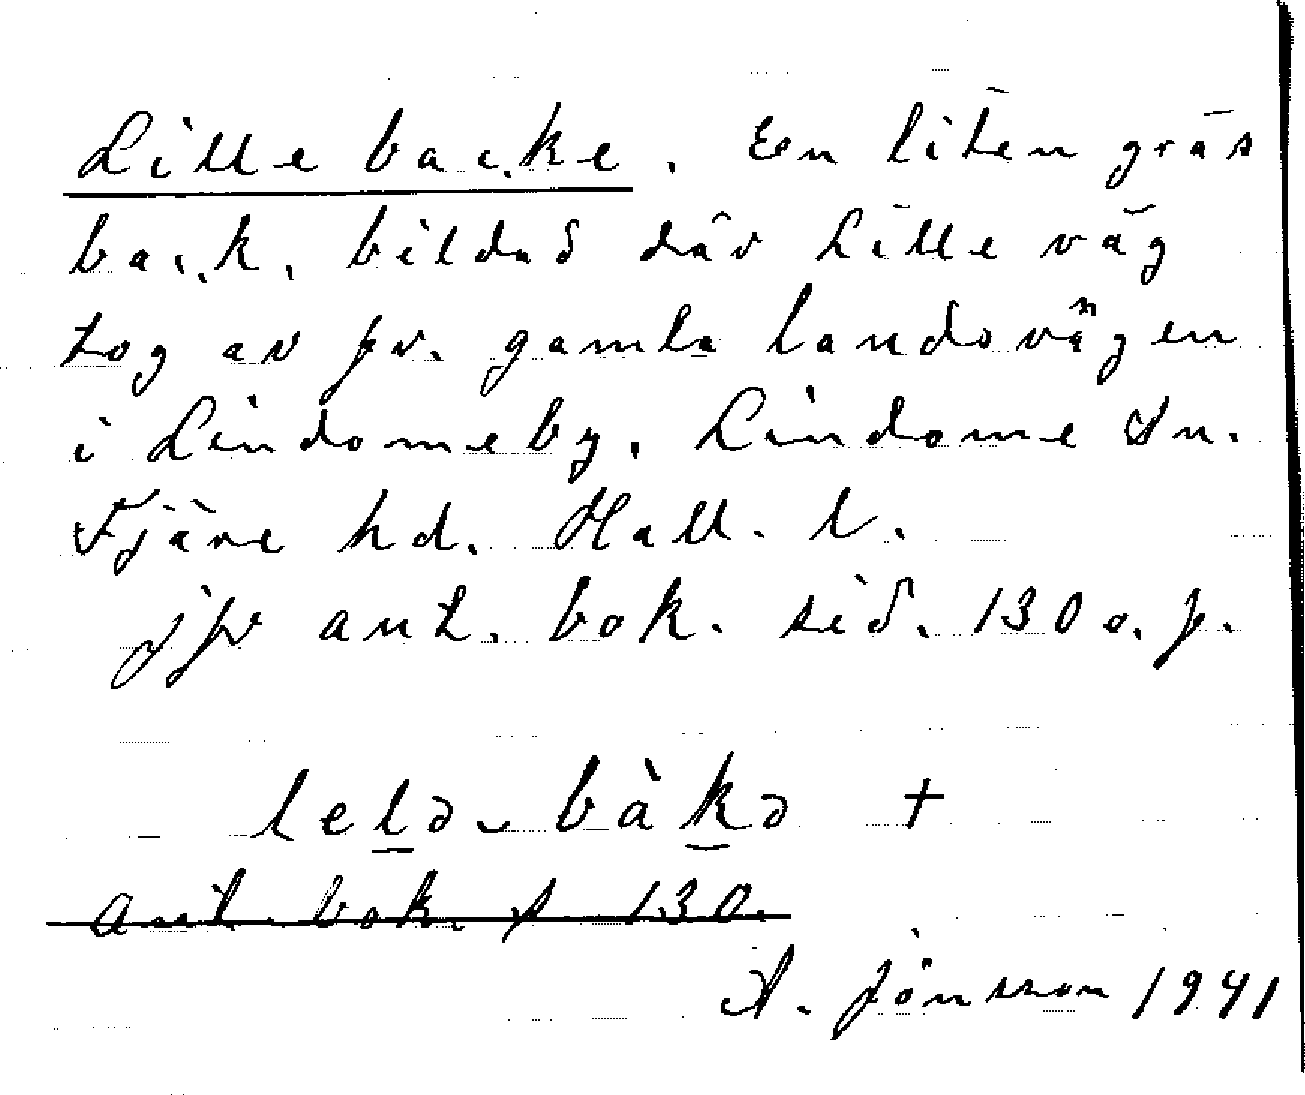 Lille backe. En liten gräs
back, bildad där Lille väg
tog av fr. gamla landsvägen
i Lindome by, Lindome sn.
Fjäre hd. Hall. l.
jfr ant. bok. sid. 130 o. f.
lelə bàkə +
ant. bok. s 130.
A. Jönsson 1941